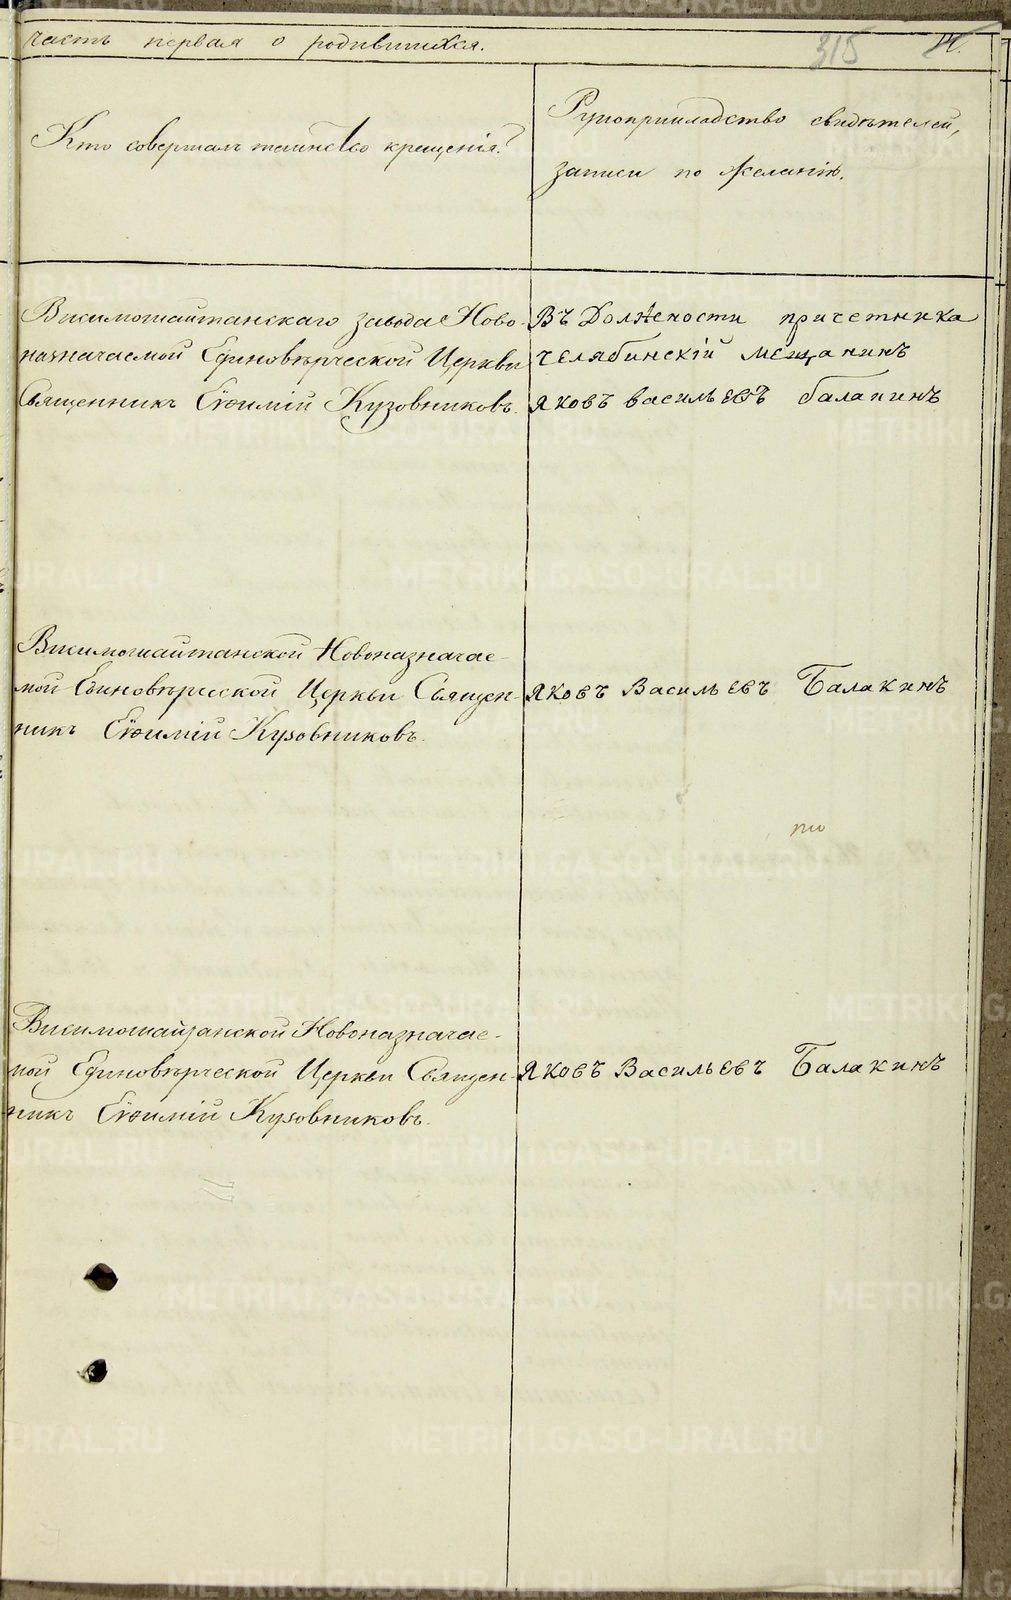 часть первая о родившихся.
315
Кто совершалъ таинство крещенія?
Рукоприкладство свидѣтелей,
записи по желанію.
Висимошайтанскаго завода Ново-
назначаемой Единовѣрческой Церкви
Священникъ Евѳимій Кузовниковъ.
Въ Должности причетника
челябинскій мещанинъ
яковъ васильевъ балакинъ
Висимошайтанской Новоназначае-
мой Единовѣрческой Церкви Священ-
никъ Евѳимій Кузовниковъ.
яковъ Васильевъ Балакинъ
Висимошайтанской Новоназначае-
мой Единовѣрческой Церкви Священ-
никъ Евѳимій Кузовниковъ.
яковъ Васильевъ Балакинъ
METRIKI.GASO-URAL.RU